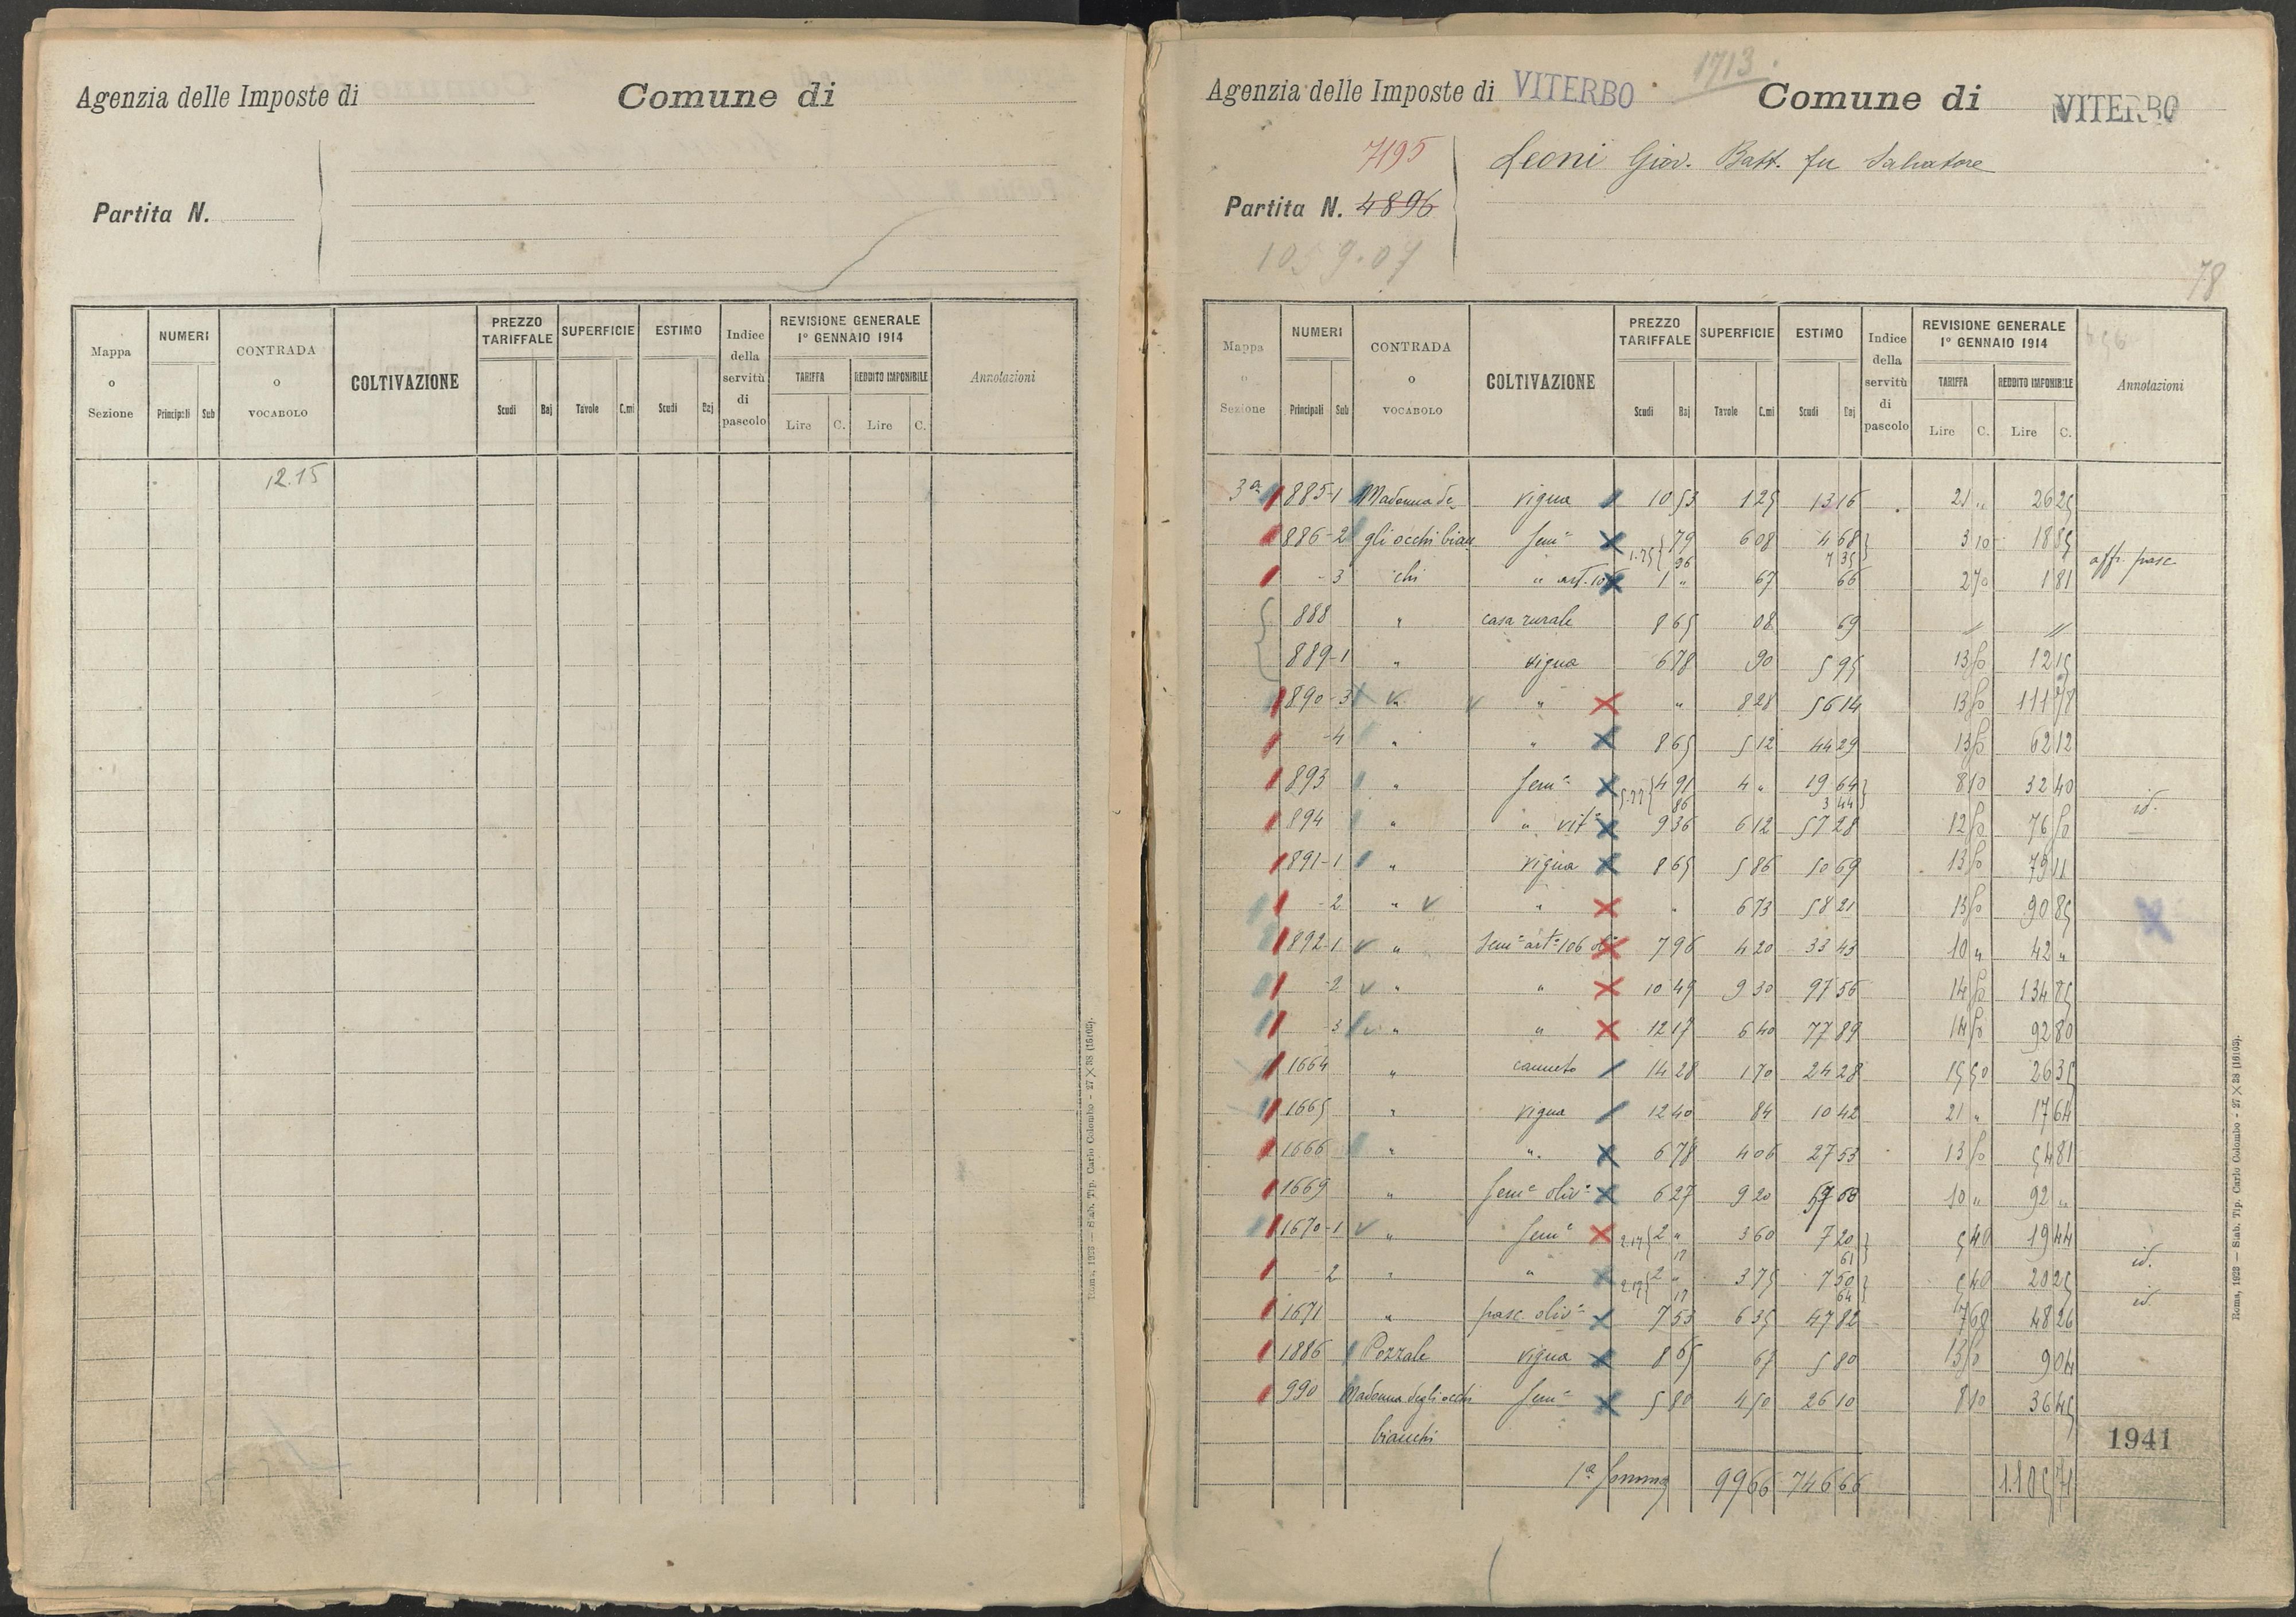 Agenzia delle Imposte di
Comune di
Partita N.
Mappa o Sezione
NUMERI
Principali Sub
CONTRADA o VOCABOLO
COLTIVAZIONE
PREZZO TARIFFALE
Scudi Baj
SUPERFICIE
Tavole C.mi
ESTIMO
Scudi Baj
Indice della servitù di pascolo
REVISIONE GENERALE
1° GENNAIO 1914
TARIFFA REDDITO IMPONIBILE
Lire C. Lire C.
Annotazioni
12.15
Roma, 1923 — Stab. Tip. Carlo Colombo - 27 X 38 (16102).
1713
Agenzia delle Imposte di VITERBO
Comune di VITERBO
7195
Leoni Giov. Batt. fu Salvatore
Partita N. 4896
78
Mappa o Sezione
NUMERI
Principali Sub
CONTRADA o VOCABOLO
COLTIVAZIONE
PREZZO TARIFFALE
Scudi Baj
SUPERFICIE
Tavole C.mi
ESTIMO
Scudi Baj
Indice della servitù di pascolo
REVISIONE GENERALE
1° GENNAIO 1914
TARIFFA REDDITO IMPONIBILE
Lire C. Lire C.
Annotazioni
3a 885-1 Madonna de- vigna 10 53 1 25 13 16 21 " 26 25
886-2 gli occhi bian 1.75 { 79 6 08 4 68 } 3 10 18 85
96 7 35 aff. pasc
-3 chi " art. 106 1 " 67 66 2 70 1 81
888 " casa rurale 8 65 08 69 " "
889-1 " vigna 6 78 90 5 95 13 50 12 15
890-3 " " " 8 28 56 14 13 50 111 78
-4 " " 8 65 5 12 44 29 13 50 62 12
893 " Sem° 5.77 { 4 91 4 " 19 64 } 8 10 32 40
86 3 44 id.
894 " " vit° 9 36 6 12 57 28 12 50 76 50
891-1 " vigna 8 65 5 86 50 69 13 50 79 11
-2 " " " 6 73 58 21 13 50 90 85
892-1 " Sem° art° 106 7 96 4 20 33 43 10 " 42 "
-2 " " 10 49 9 30 97 56 14 50 134 85
-3 " " 12 17 6 40 77 89 14 50 92 80
1664 " canneto 14 28 1 70 24 28 15 50 26 35
1665 " vigna 12 40 84 10 42 21 " 17 64
1666 " " 6 78 4 06 27 53 13 50 54 81
1669 " Sem° oliv° 6 27 9 20 57 68 10 " 92 "
1670-1 " Sem° 2.17 { 2 " 3 60 7 20 } 5 40 19 44
17 61 id.
-2 " " 2.17 { 2 " 3 75 7 50 } 5 40 20 25
17 64 id.
1671 " pasc. oliv° 7 53 6 35 47 82 7 60 48 26
1886 Pezzale vigna 8 65 67 5 80 13 50 9 04
990 Madonna degli occhi Sem° 5 80 4 50 26 10 8 10 36 45
bianchi
1941
1a Somma 99 66 746 66 1.185 71
Roma, 1923 — Stab. Tip. Carlo Colombo - 27 X 38 (16102).